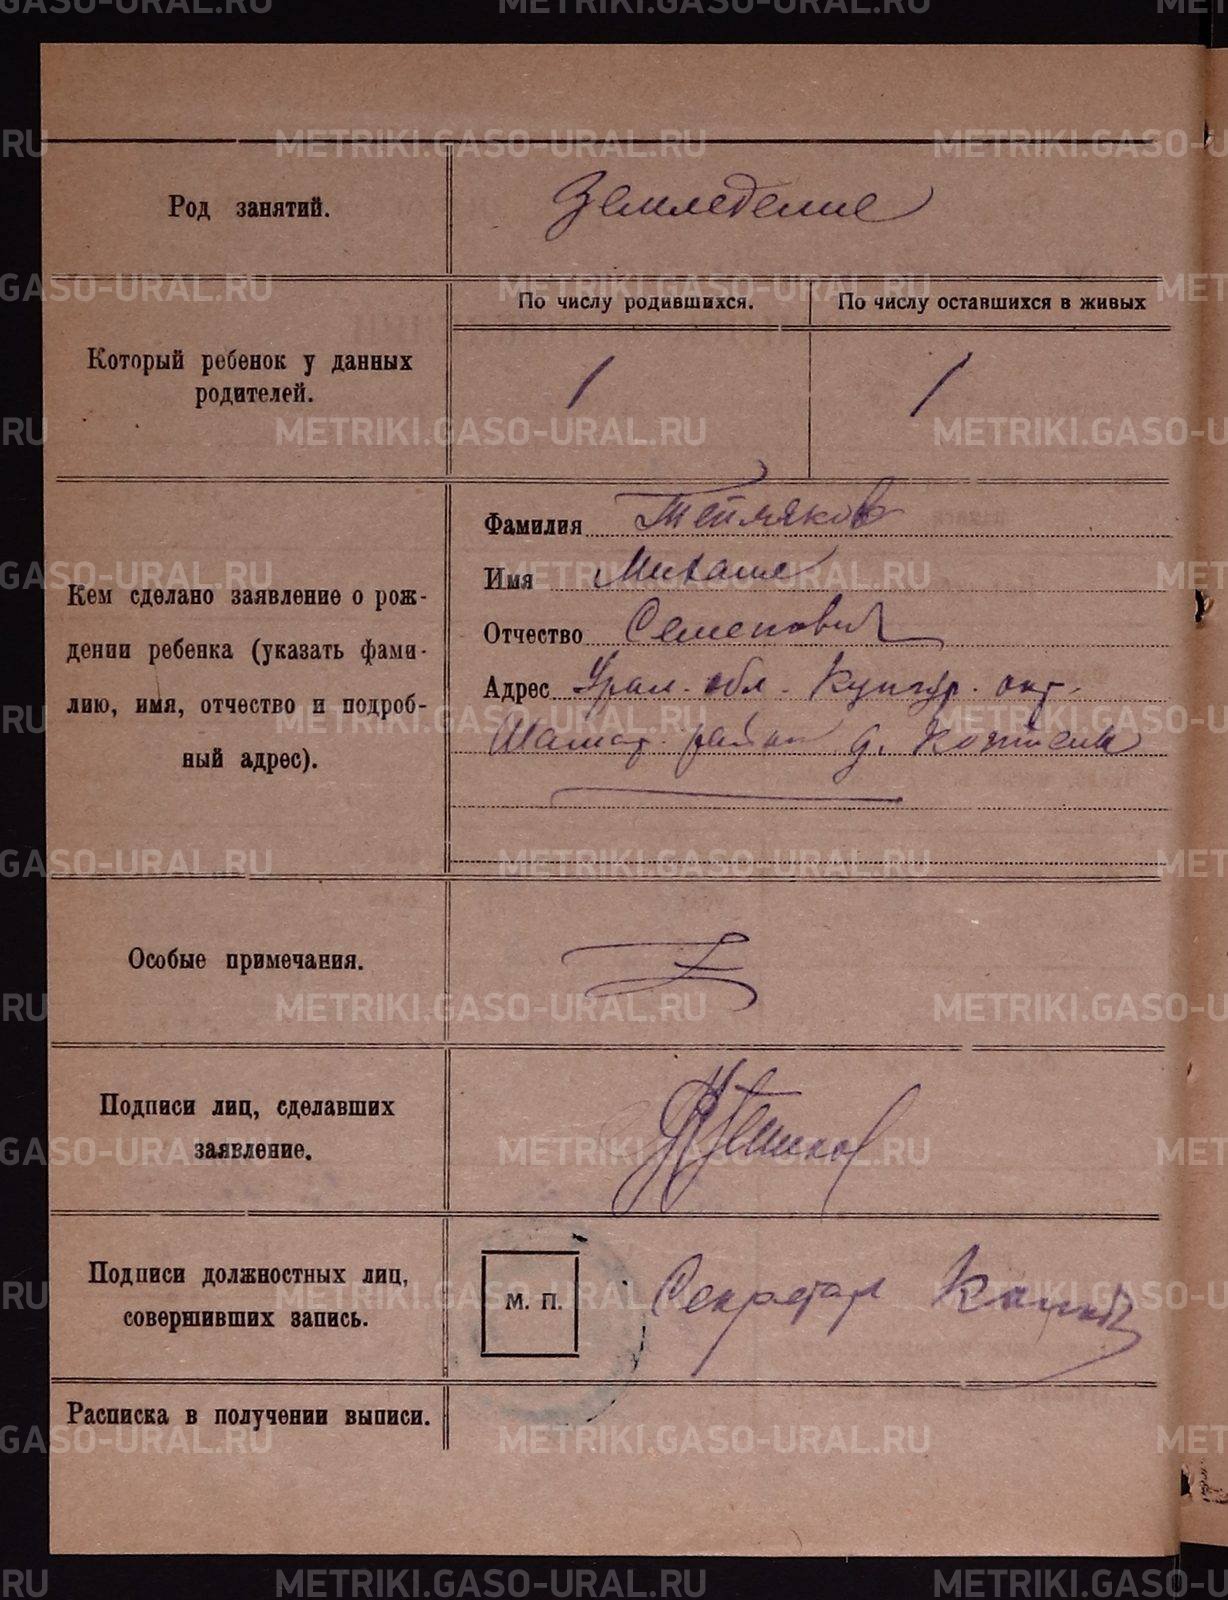 Род занятий.
Земледелие
По числу родившихся.
По числу оставшихся в живых
Который ребенок у данных
родителей.
1
1
Кем сделано заявление о рож-
дении ребенка (указать фами-
лию, имя, отчество и подроб-
ный адрес).
Фамилия
Имя Михаил
Отчество Семенович
Адрес Урал. обл. Кунгур. окр.
район д.
Особые примечания.
Подписи лиц, сделавших
заявление.
Подписи должностных лиц,
совершивших запись.
М. П.
Секретар
Расписка в получении выписи.
METRIKI.GASO-URAL.RU